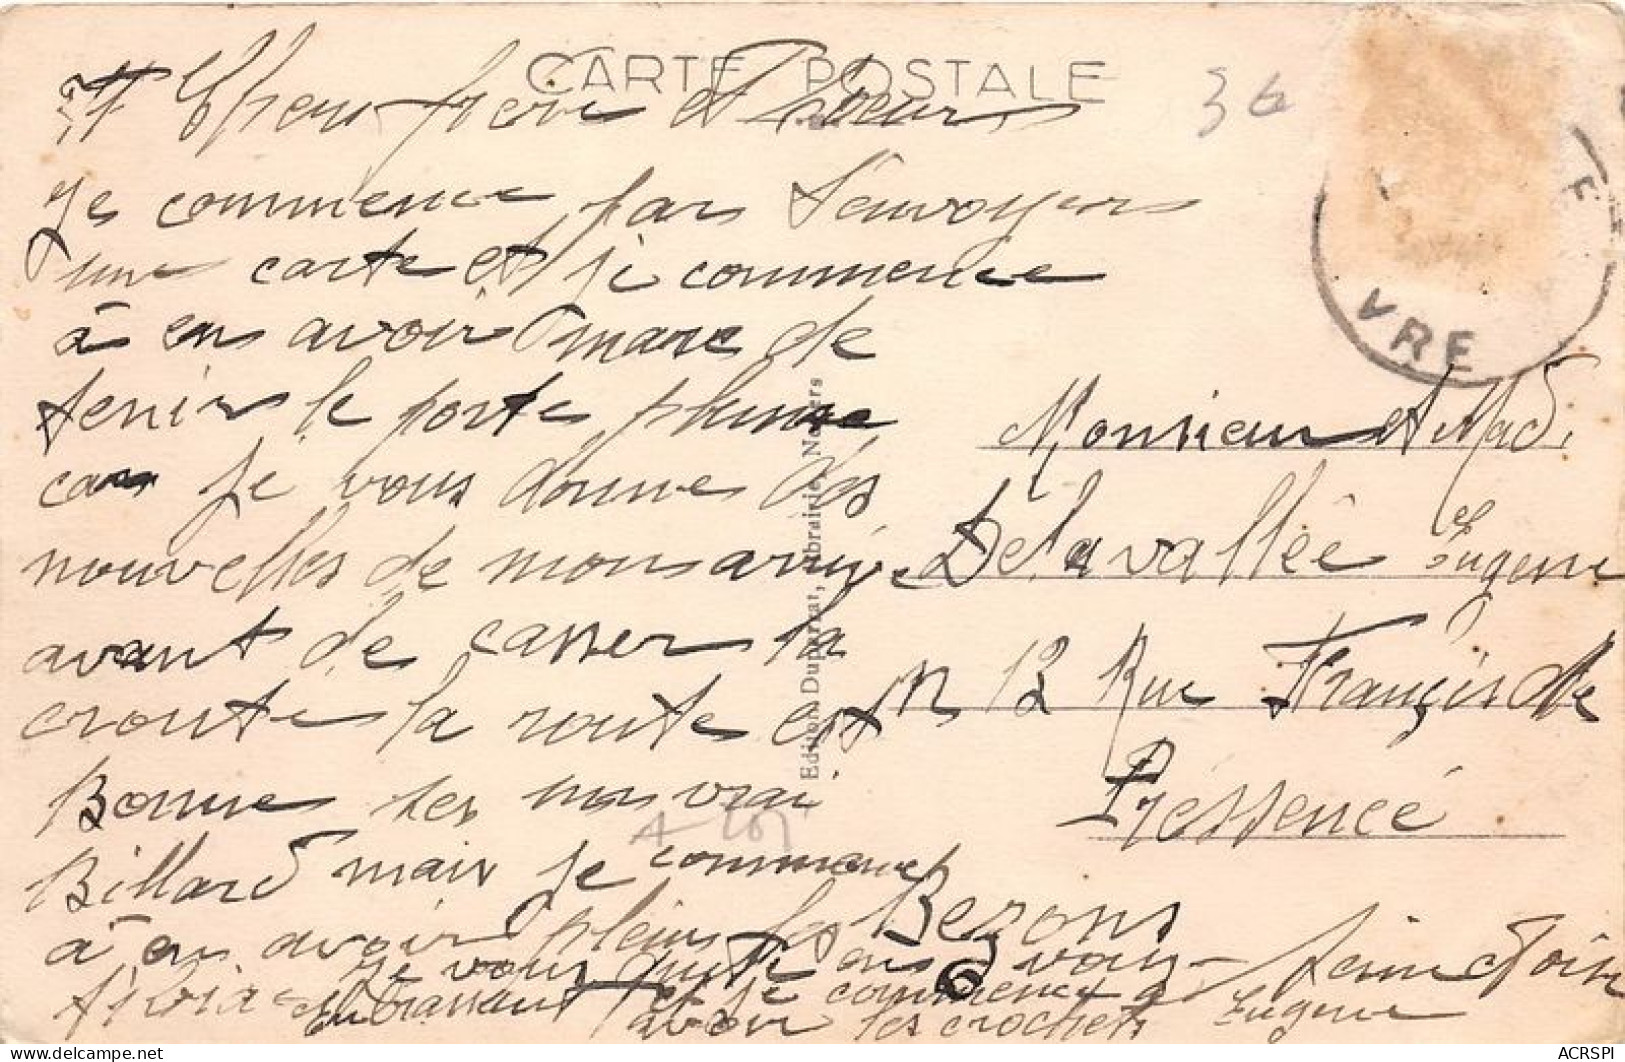 CARTE POSTALE
36
Cheur frère et Sœur
Je commence par
une carte et je commence
à en avoir mare de
tenir le porte plume
car je vous donne des
nouvelles de mon arrivé
avant de casser la
croute la route est
Bonne un vrai
Billard mais je commence
à en avoir plein les
je vous quitte en vous
embrassant et je commence a
avoir les crochets Eugene
Monsieur et Mad.
Delavallée Eugene
n 12 Rue Françis de
Préssencé
Bezons
Seine et Oise
VRE
Edition Duparrat, Librairie, Nevers
ACRSPI